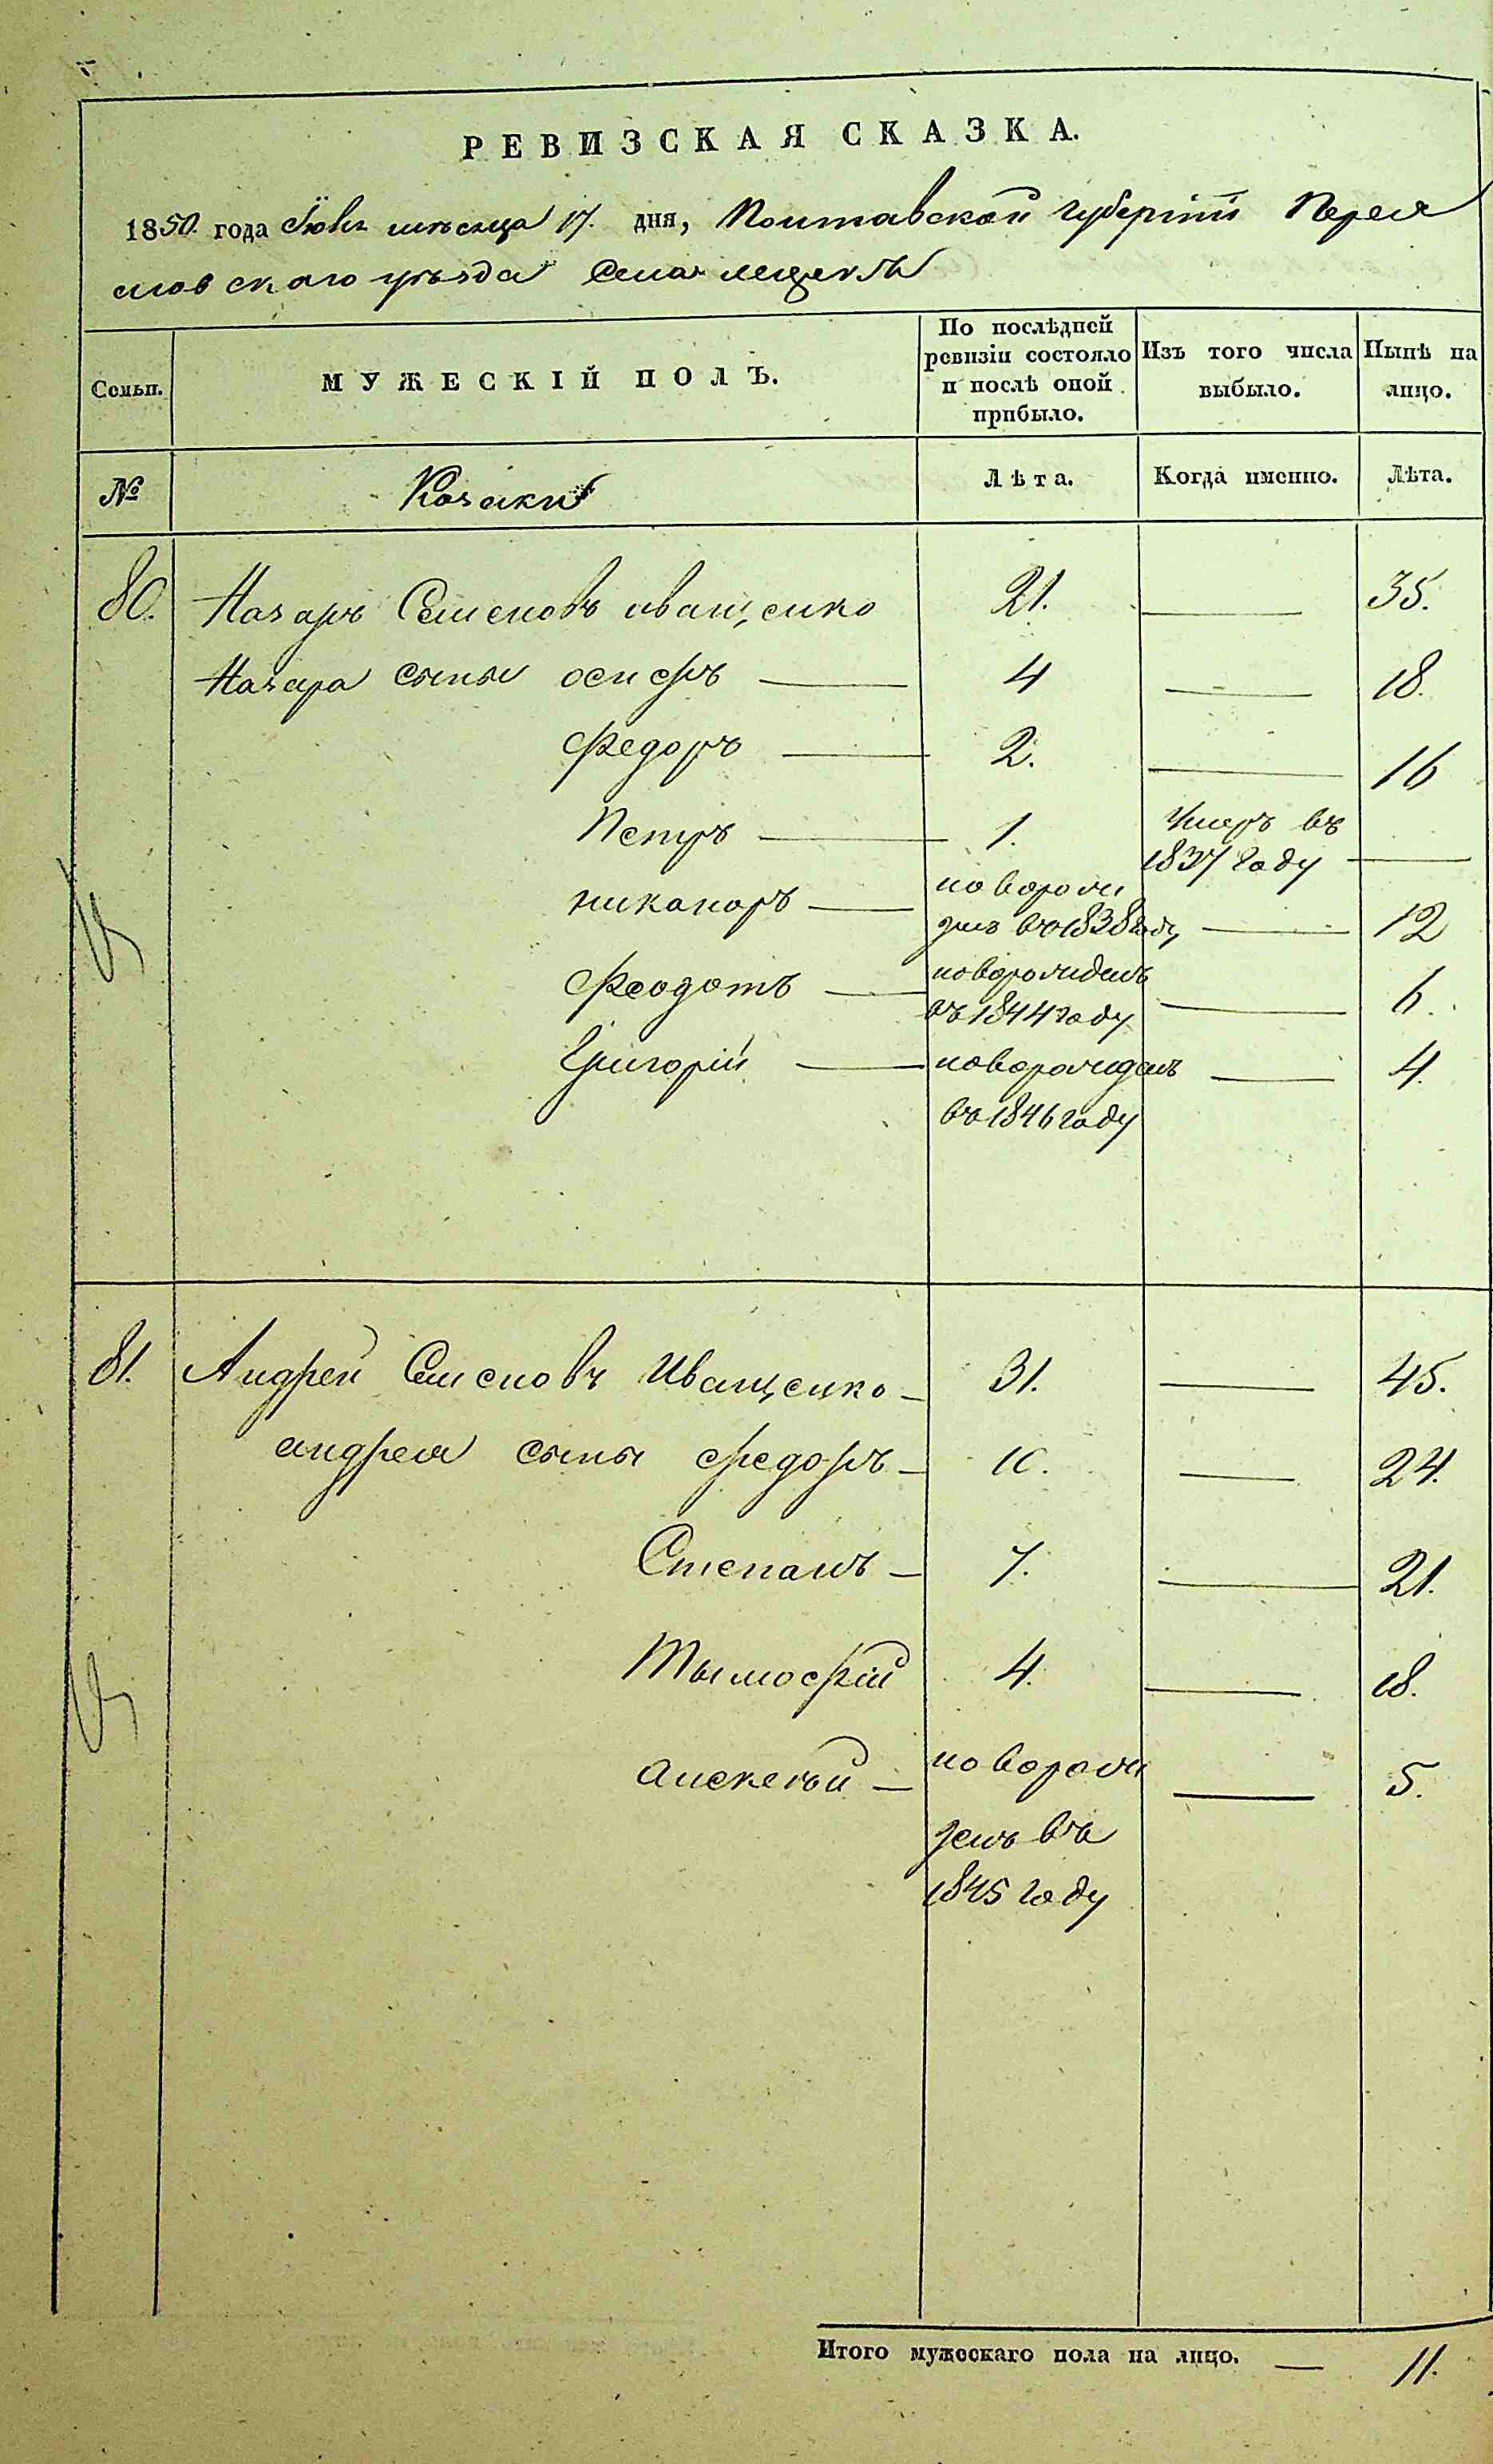 РЕВИЗСКАЯ СКАЗКА.
1850. года Июня мѣсяца 17. дня, Полтавской губерніи Перея
словского уѣзда Села лецьки
Семьи.
МУЖЕСКІЙ ПОЛЪ.
По послѣдней ревизіи состояло и послѣ оной прибыло.
Изъ того числа выбыло.
Нынѣ на лицо.
№
Козаки
Лѣта.
Когда именно.
Лѣта.
80. Назаръ Семеновъ иващенко 21. — 35.
Назара сыны осифъ — 4 — 18.
Федоръ — 2. — 16
Петръ — 1. Умеръ въ
1837 году —
никаноръ — новорож
денъ въ 1838 году — 12
Феодотъ — новорожденъ
въ 1844 году — 6.
Григорій — новорожденъ — 4.
въ 1846 году
81. Андрей Семеновъ Иващенко — 31. — 45.
андрея сыны федоръ — 10. — 24.
Степанъ — 7. — 21.
Тымофій 4. — 18.
алексѣй — новорож — 5.
денъ въ
1845 году
Итого мужескаго пола на лицо. — 11.